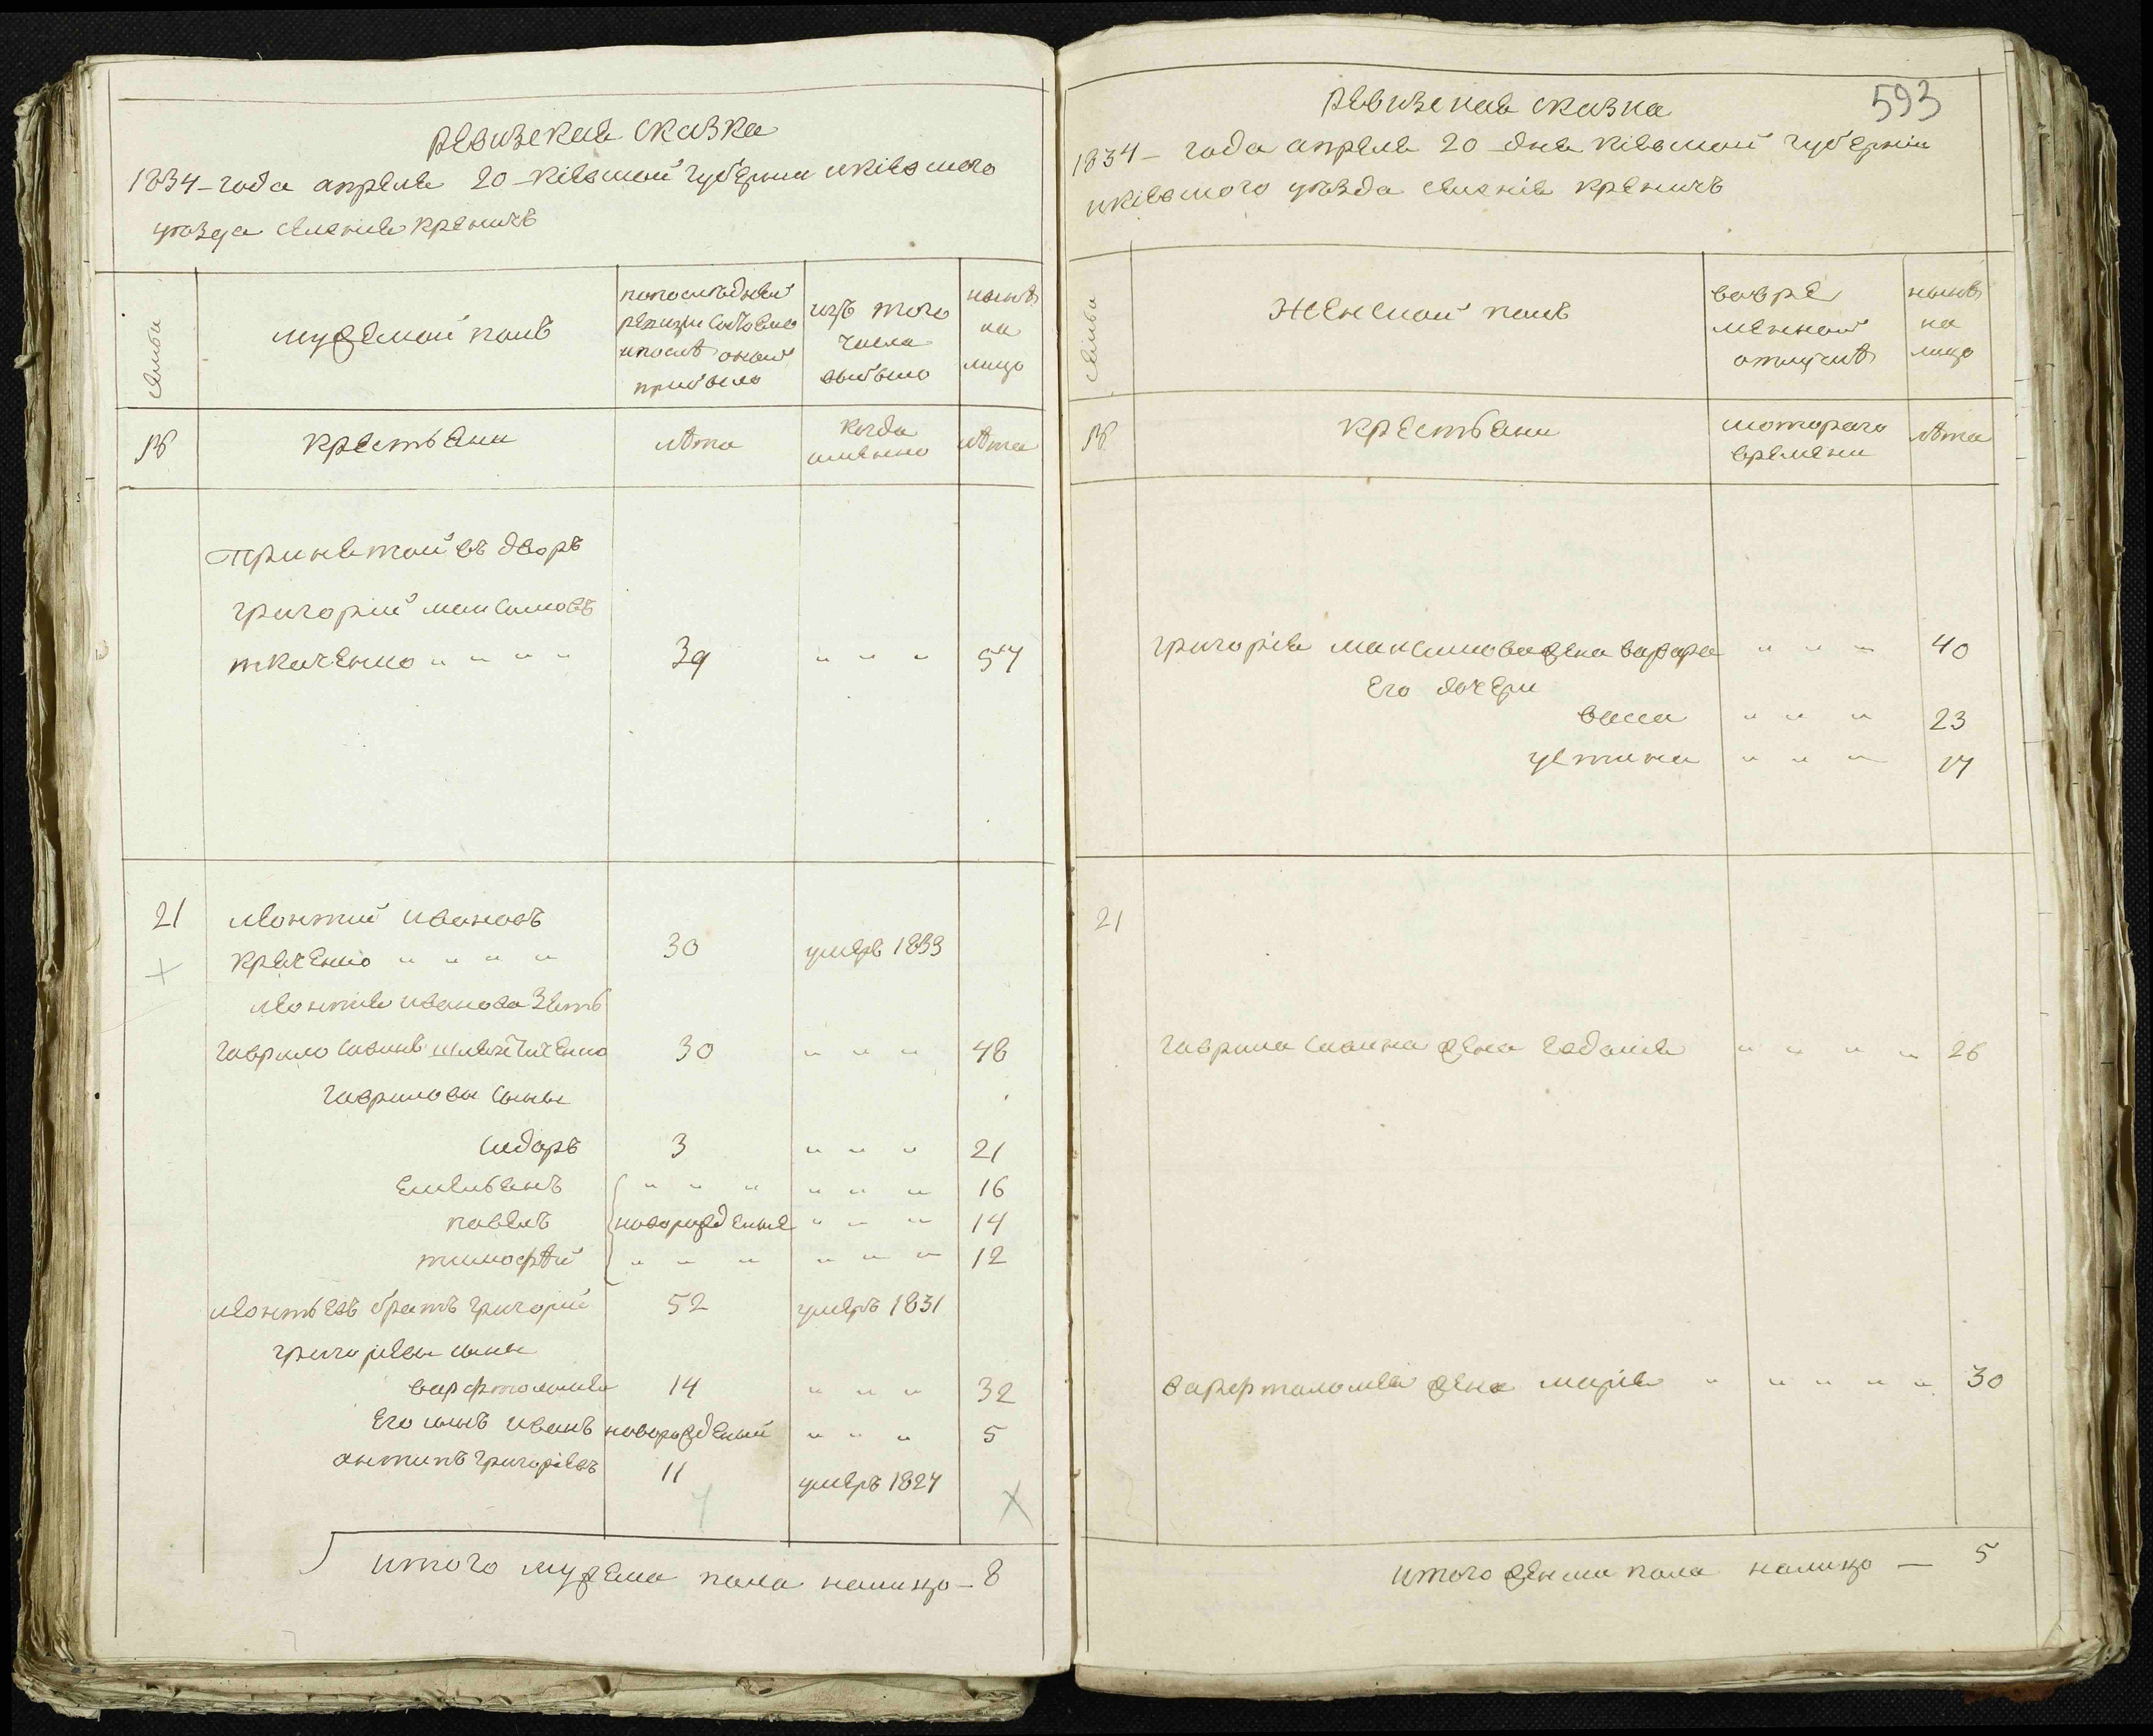 ревизская сказка
1834 – года апреля 20 – кіевской губернии икіевского
уезда селения креничь
семьи
мужеской полъ
попоследней
ревизіи состояло
ипосле оной
прибыло
изъ того
числа
выбыло
ныне
на
лицо
№
крестьяни
лѣта
когда
имянно
лѣта
принятой въ дворъ
григорий максимовъ
ткаченко " " " "
39
" " "
57
21
леонтий ивановъ
кравченко " " " "
30
умеръ 1833
леонтия иванова зять
гаврило савинъ
30
" " "
48
гавриловы сыны
сидоръ
3
" " "
21
емельянъ
" " "
" " "
16
павелъ
новорожденые
" " "
14
тимофѣй
" " "
" " "
12
леонтьевъ братъ григорий
52
умеръ 1831
григориевы сыны
варфтоломей
14
" " "
32
его сынъ иванъ
новорожденый
" " "
5
антипъ григоріевъ
11
умеръ 1827
итого мужеска пола налицо – 8
593
ревизская сказка
1834 – года апреля 20 – дня кіевской губерніи
икіевского уезда селенія креничъ
семьи
женской полъ
вовре
менной
отлучке
ныне
на
лицо
№
крестьяни
скоторого
времени
лѣта
григорія максимова жена варвара
" " "
40
его дочери
васса
" " "
23
устина
" " "
17
21
гаврила савина жена
" " " "
26
варфтоломея жена марія "
" " " "
30
итого женска пола налицо — 5